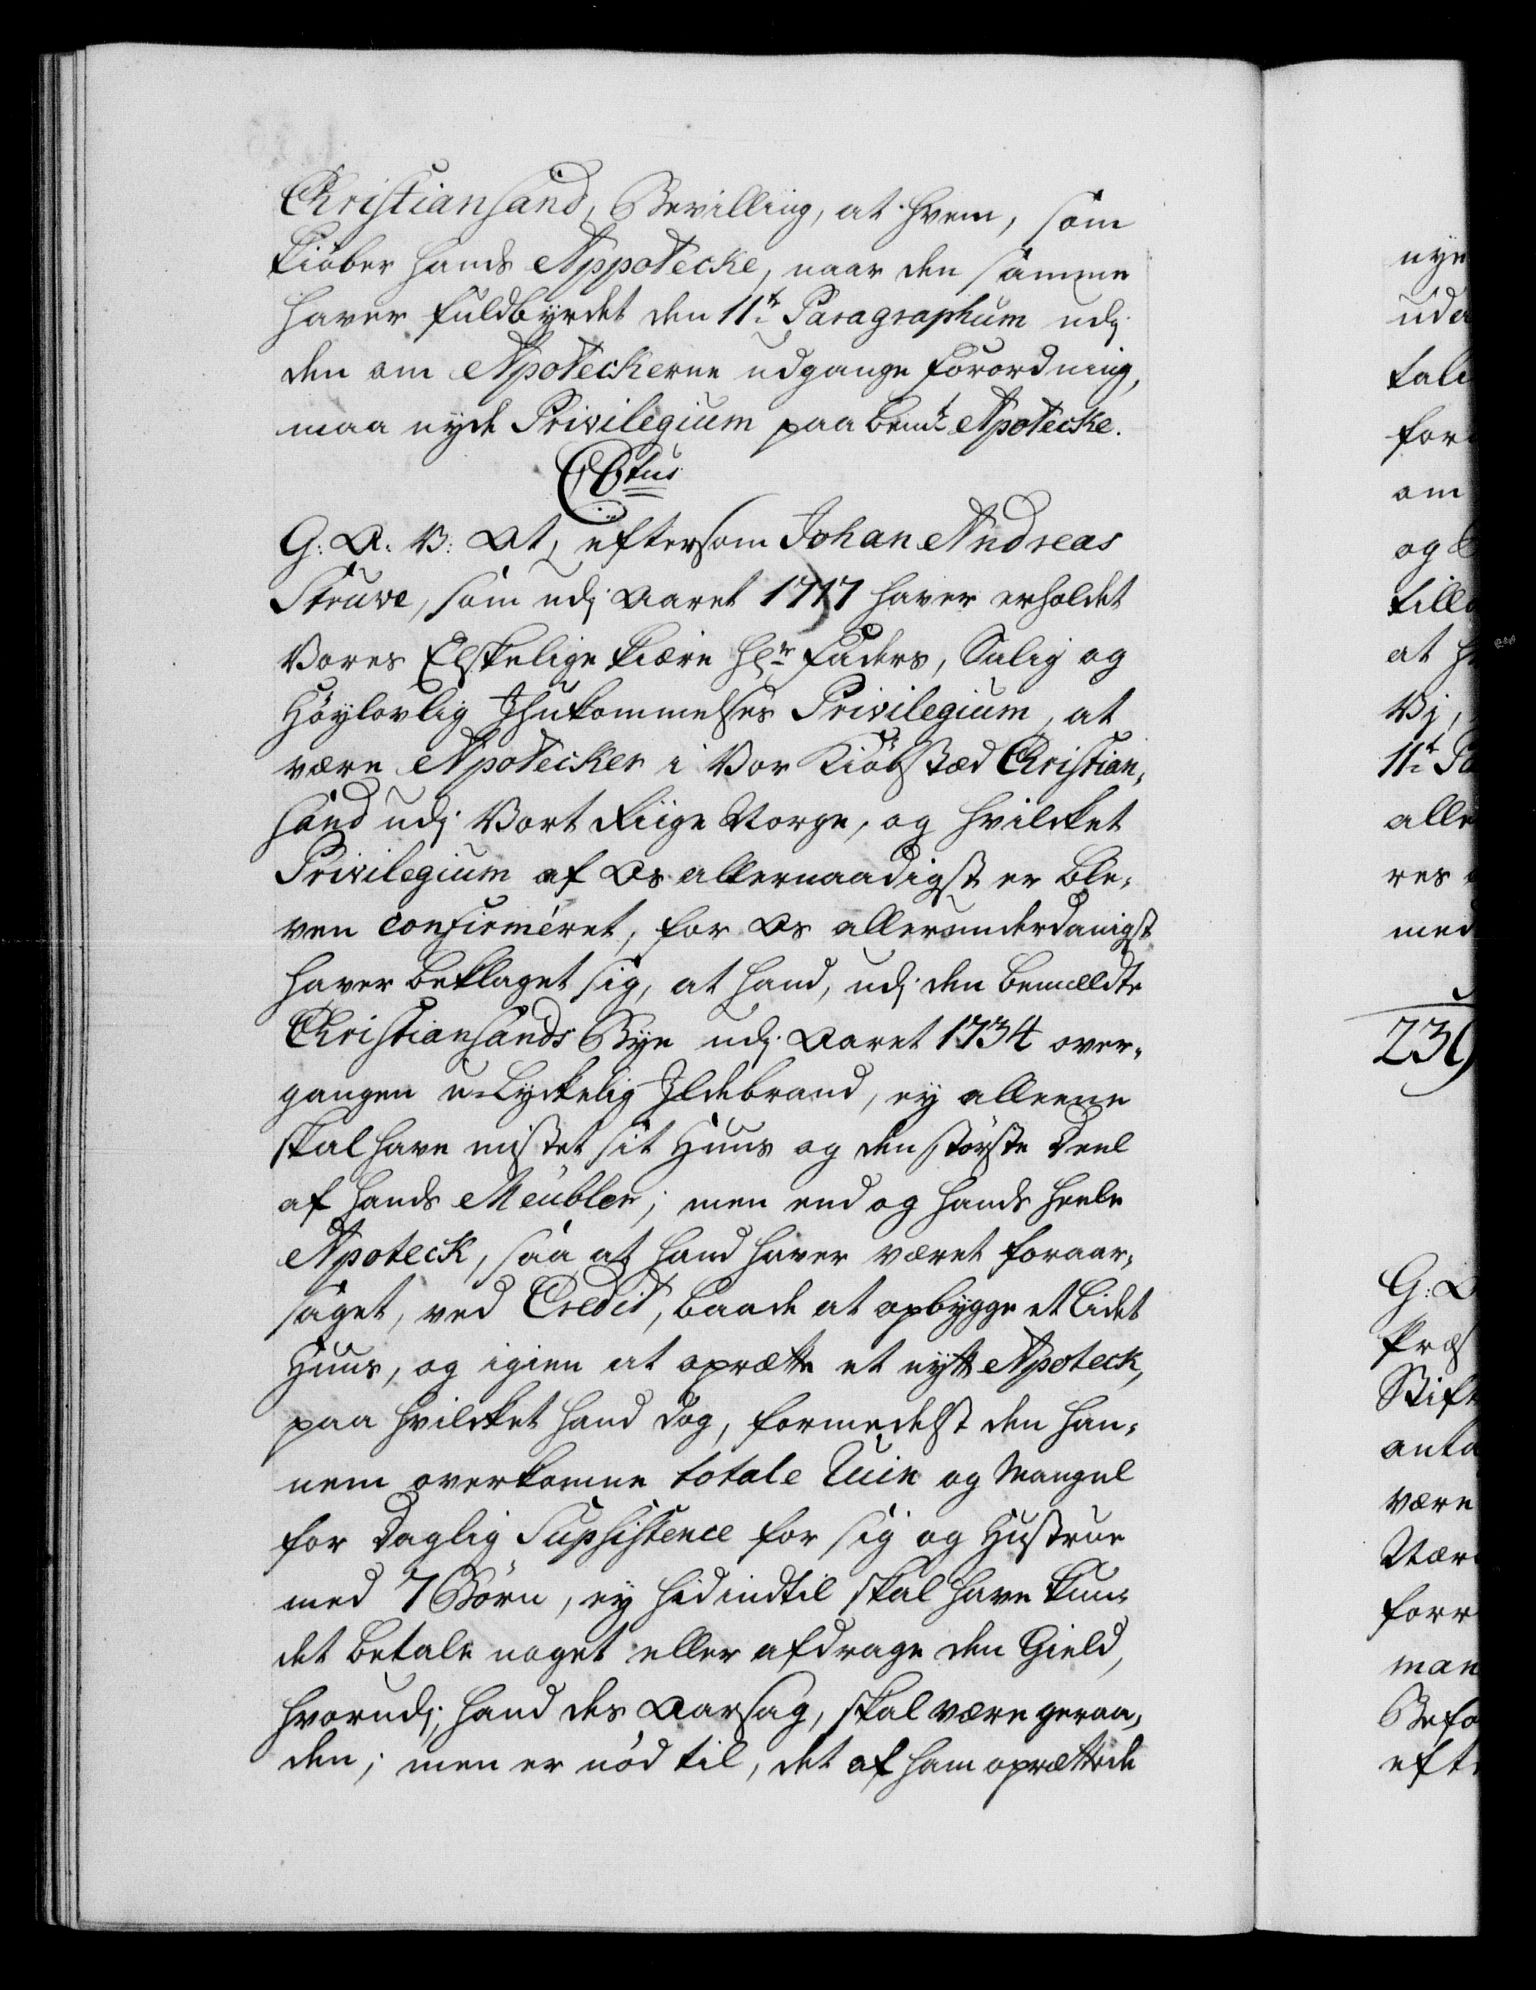 Christiansand, Bevilling, at hvem, som
kiøber hands Appotecke, naar den samme
haver fuldbyrdet den 11te Paragraphum udj
den om Apoteckerne udgangne Forordning,
maa nyde Privilegium paa bemte Apotecke.
G: A: V: At, eftersom Johan Andreas
Struwe, som udj Aaret 1717 haver erholdet
Vores Elskelige kiære Hr Faders, Salig og
Høylovlig Ihukommelses Privilegium, at
være Apotecker i Vor Kiøbstæd Christian,
sand udj Vort Riige Norge, og hvilcket
Privilegium af Os allernaadigst er ble,
ven confirmeret, for Os allerunderdanigst
haver beklaget sig, at hand, udj den bemeldte
Christiansands Bye udj Aaret 1734 over,
gangen u-Lyckelig Ildebrand, ey alleene
skal have mistet sit Huus og den største Deel
af hands Meubler; men end og hands heele
Apoteck, saa at hand haver været foraar,
saget, ved Credit, baade at opbygge et lidet
Huus, og igien at oprætte et nytt Apoteck,
paa hvilcket hand dog, formedelst den han,
nem overkomne totale Ruin og Mangel
for Daglig Supsistence for sig og Hustrue
med 7 Børn, ey hidindtil skal have kun,
det betale noget eller afdrage den Gield,
hvorudj, hand des Aarsag, skal være geraa,
den; men er nød til, det af ham oprættede
nye
uda
tali
for
om
og
till
at
Vj,
11te Pa
alle
res
med
239
G: A
Præs
Stift
anta
være
Nær
forr
man
Befa
eft